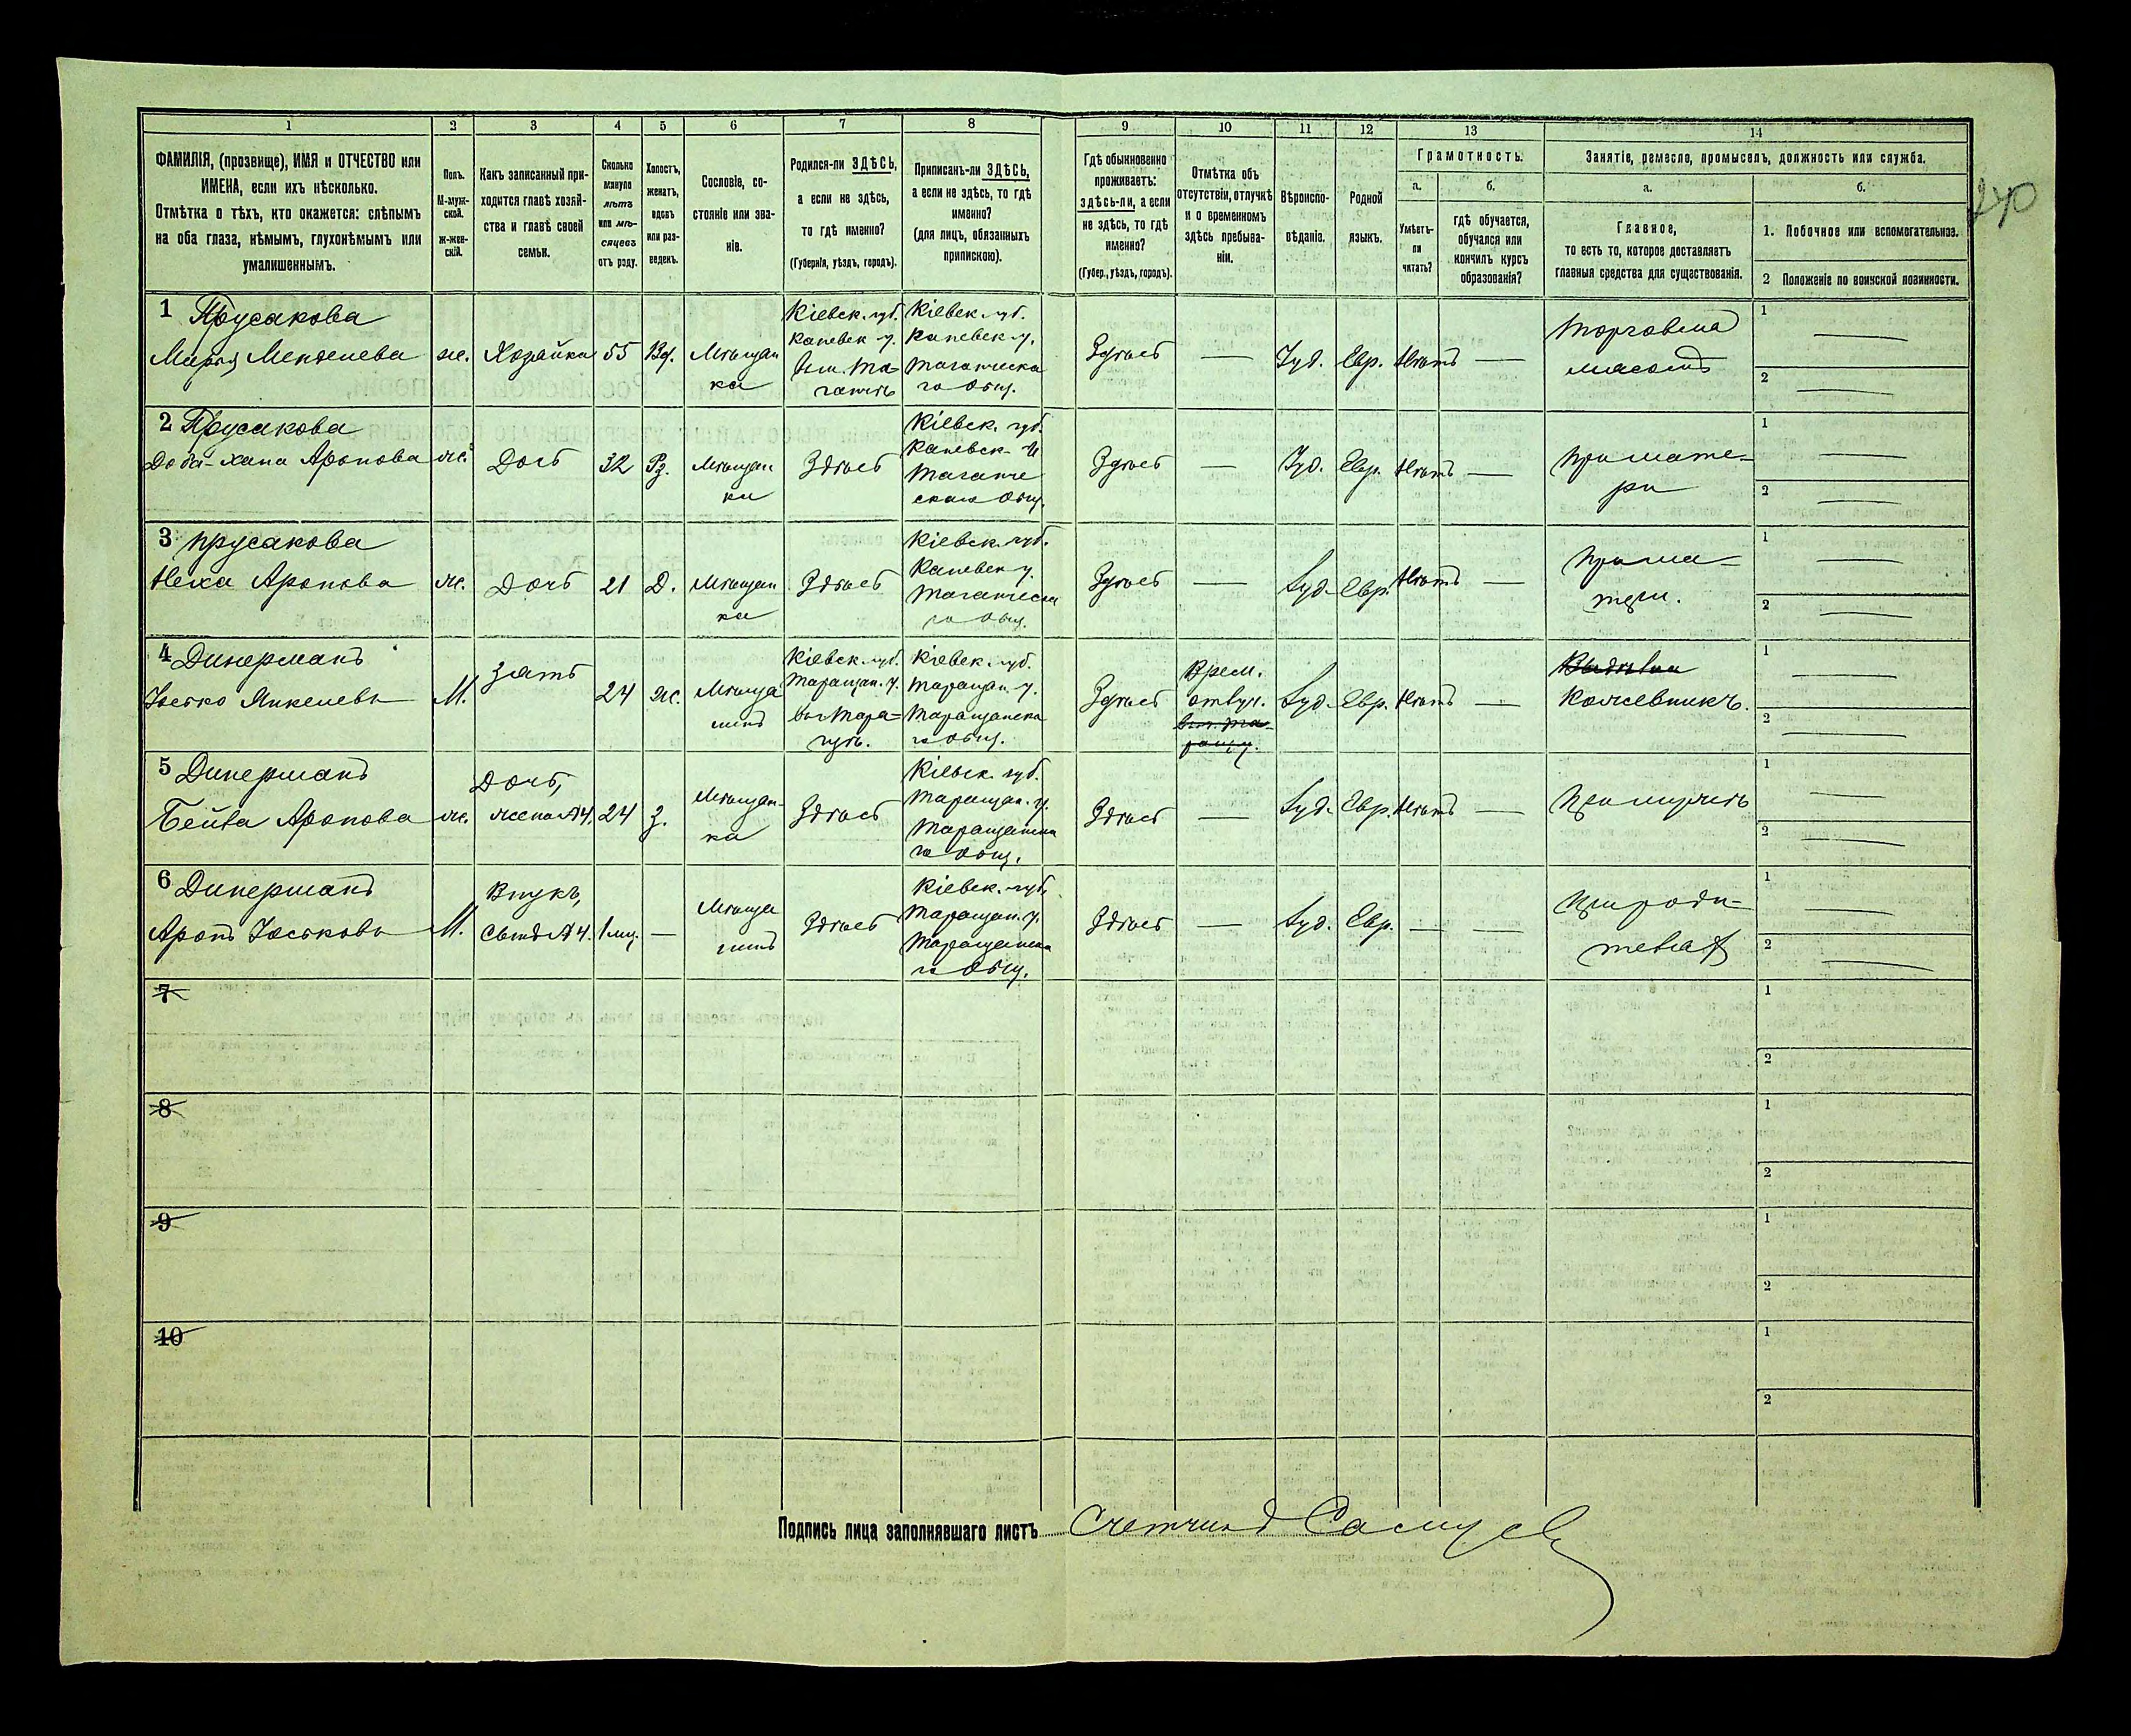 240
1 2 3 4 5 6 7 8 9 10 11 12 13 14
ФАМИЛІЯ, (прозвище), ИМЯ и ОТЧЕСТВО или
ИМЕНА, если ихъ нѣсколько.
Отмѣтка о тѣхъ, кто окажется: слѣпымъ
на оба глаза, нѣмымъ, глухонѣмымъ или
умалишеннымъ.
Полъ.
М-муж-
ской.
ж-жен-
скій.
Какъ записанный при-
ходится главѣ хозяй-
ства и главѣ своей
семьи.
Сколько
минуло
лѣтъ
или мѣ-
сяцевъ
отъ роду.
Холостъ,
женатъ,
вдовъ
или раз-
веденъ.
Сословіе, со-
стояніе или зва-
ніе.
Родился-ли ЗДѢСЬ,
а если не здѣсь,
то гдѣ именно?
(Губернія, уѣздъ, городъ).
Приписанъ-ли ЗДѢСЬ,
а если не здѣсь, то гдѣ
именно?
(для лицъ, обязанныхъ
припискою).
Гдѣ обыкновенно
проживаетъ:
здѣсь-ли, а если
не здѣсь, то гдѣ
именно?
(Губер., уѣздъ, городъ).
Отмѣтка объ
отсутствіи, отлучкѣ
и о временномъ
здѣсь пребыва-
ніи.
Вѣроиспо-
вѣданіе.
Родной
языкъ.
Грамотность.
а.
Умѣетъ-
ли
читать?
б.
гдѣ обучается,
обучался или
кончилъ курсъ
образованія?
Занятіе, ремесло, промыселъ, должность или служба.
а.
Главное,
то есть то, которое доставляетъ
главныя средства для существованія.
б.
1. Побочное или вспомогательное.
2 Положеніе по воинской повинности.
1 Прусакова
Марья Менделева
ж.
Хозяйка
55
Вд.
Мѣщан
ка
Кіевск. губ.
Каневск у.
вм. Та-
ганчѣ
Кіевск. губ.
Каневск у.
Таганческа
го Общ.
Здѣсь
—
Іуд.
Евр.
Нѣтъ
—
Торговля
мясомъ
1 —
2 —
2 Прусакова
Доба-Хана Аронова
ж.
Дочь
32
Рз.
Мѣщан
ка
Здѣсь
Кіевск. губ.
Каневск. у
Таганче
скаго Общ.
Здѣсь
—
Іуд.
Евр.
Нѣтъ
—
При мате-
ри
1 —
2 —
3 Прусакова
Неха Аронова
ж.
Дочь
21
Д.
Мѣщан
ка
Здѣсь
Кіевск. губ.
Каневск у.
Таганческа
го Общ.
Здѣсь
—
Іуд.
Евр.
Нѣтъ
—
При ма-
тери.
1 —
2 —
4 Динерманъ
Іосько Янкелевъ
М.
Зять
24
ж.
Мѣща
нинъ
Кіевск. губ.
Таращан. у.
вм Тара-
щѣ.
Кіевск. губ.
Таращан. у.
Таращанска
го Общ.
Здѣсь
Врем.
отлуч.
Іуд.
Евр.
Нѣтъ
—
Кожевникъ.
1 —
2 —
5 Динерманъ
Бейла Аронова
ж.
Дочь,
жена №4.
24
З.
Мѣщан-
ка
Здѣсь
Кіевск. губ.
Таращан. у.
Таращанска
го Общ.
Здѣсь
—
Іуд.
Евр.
Нѣтъ
—
При мужѣ
1 —
2 —
6 Динерманъ
Аронъ Іоськовъ
М.
Внукъ,
Сынъ №4.
1 мц.
—
Мѣща
нинъ
Здѣсь
Кіевск. губ.
Таращан. у.
Таращанска
го Общ.
Здѣсь
—
Іуд.
Евр.
—
—
При роди-
теляхъ
1 —
2 —
7
1
2
8
1
2
9
1
2
10
1
2
Подпись лица заполнявшаго листъ Счетчикъ